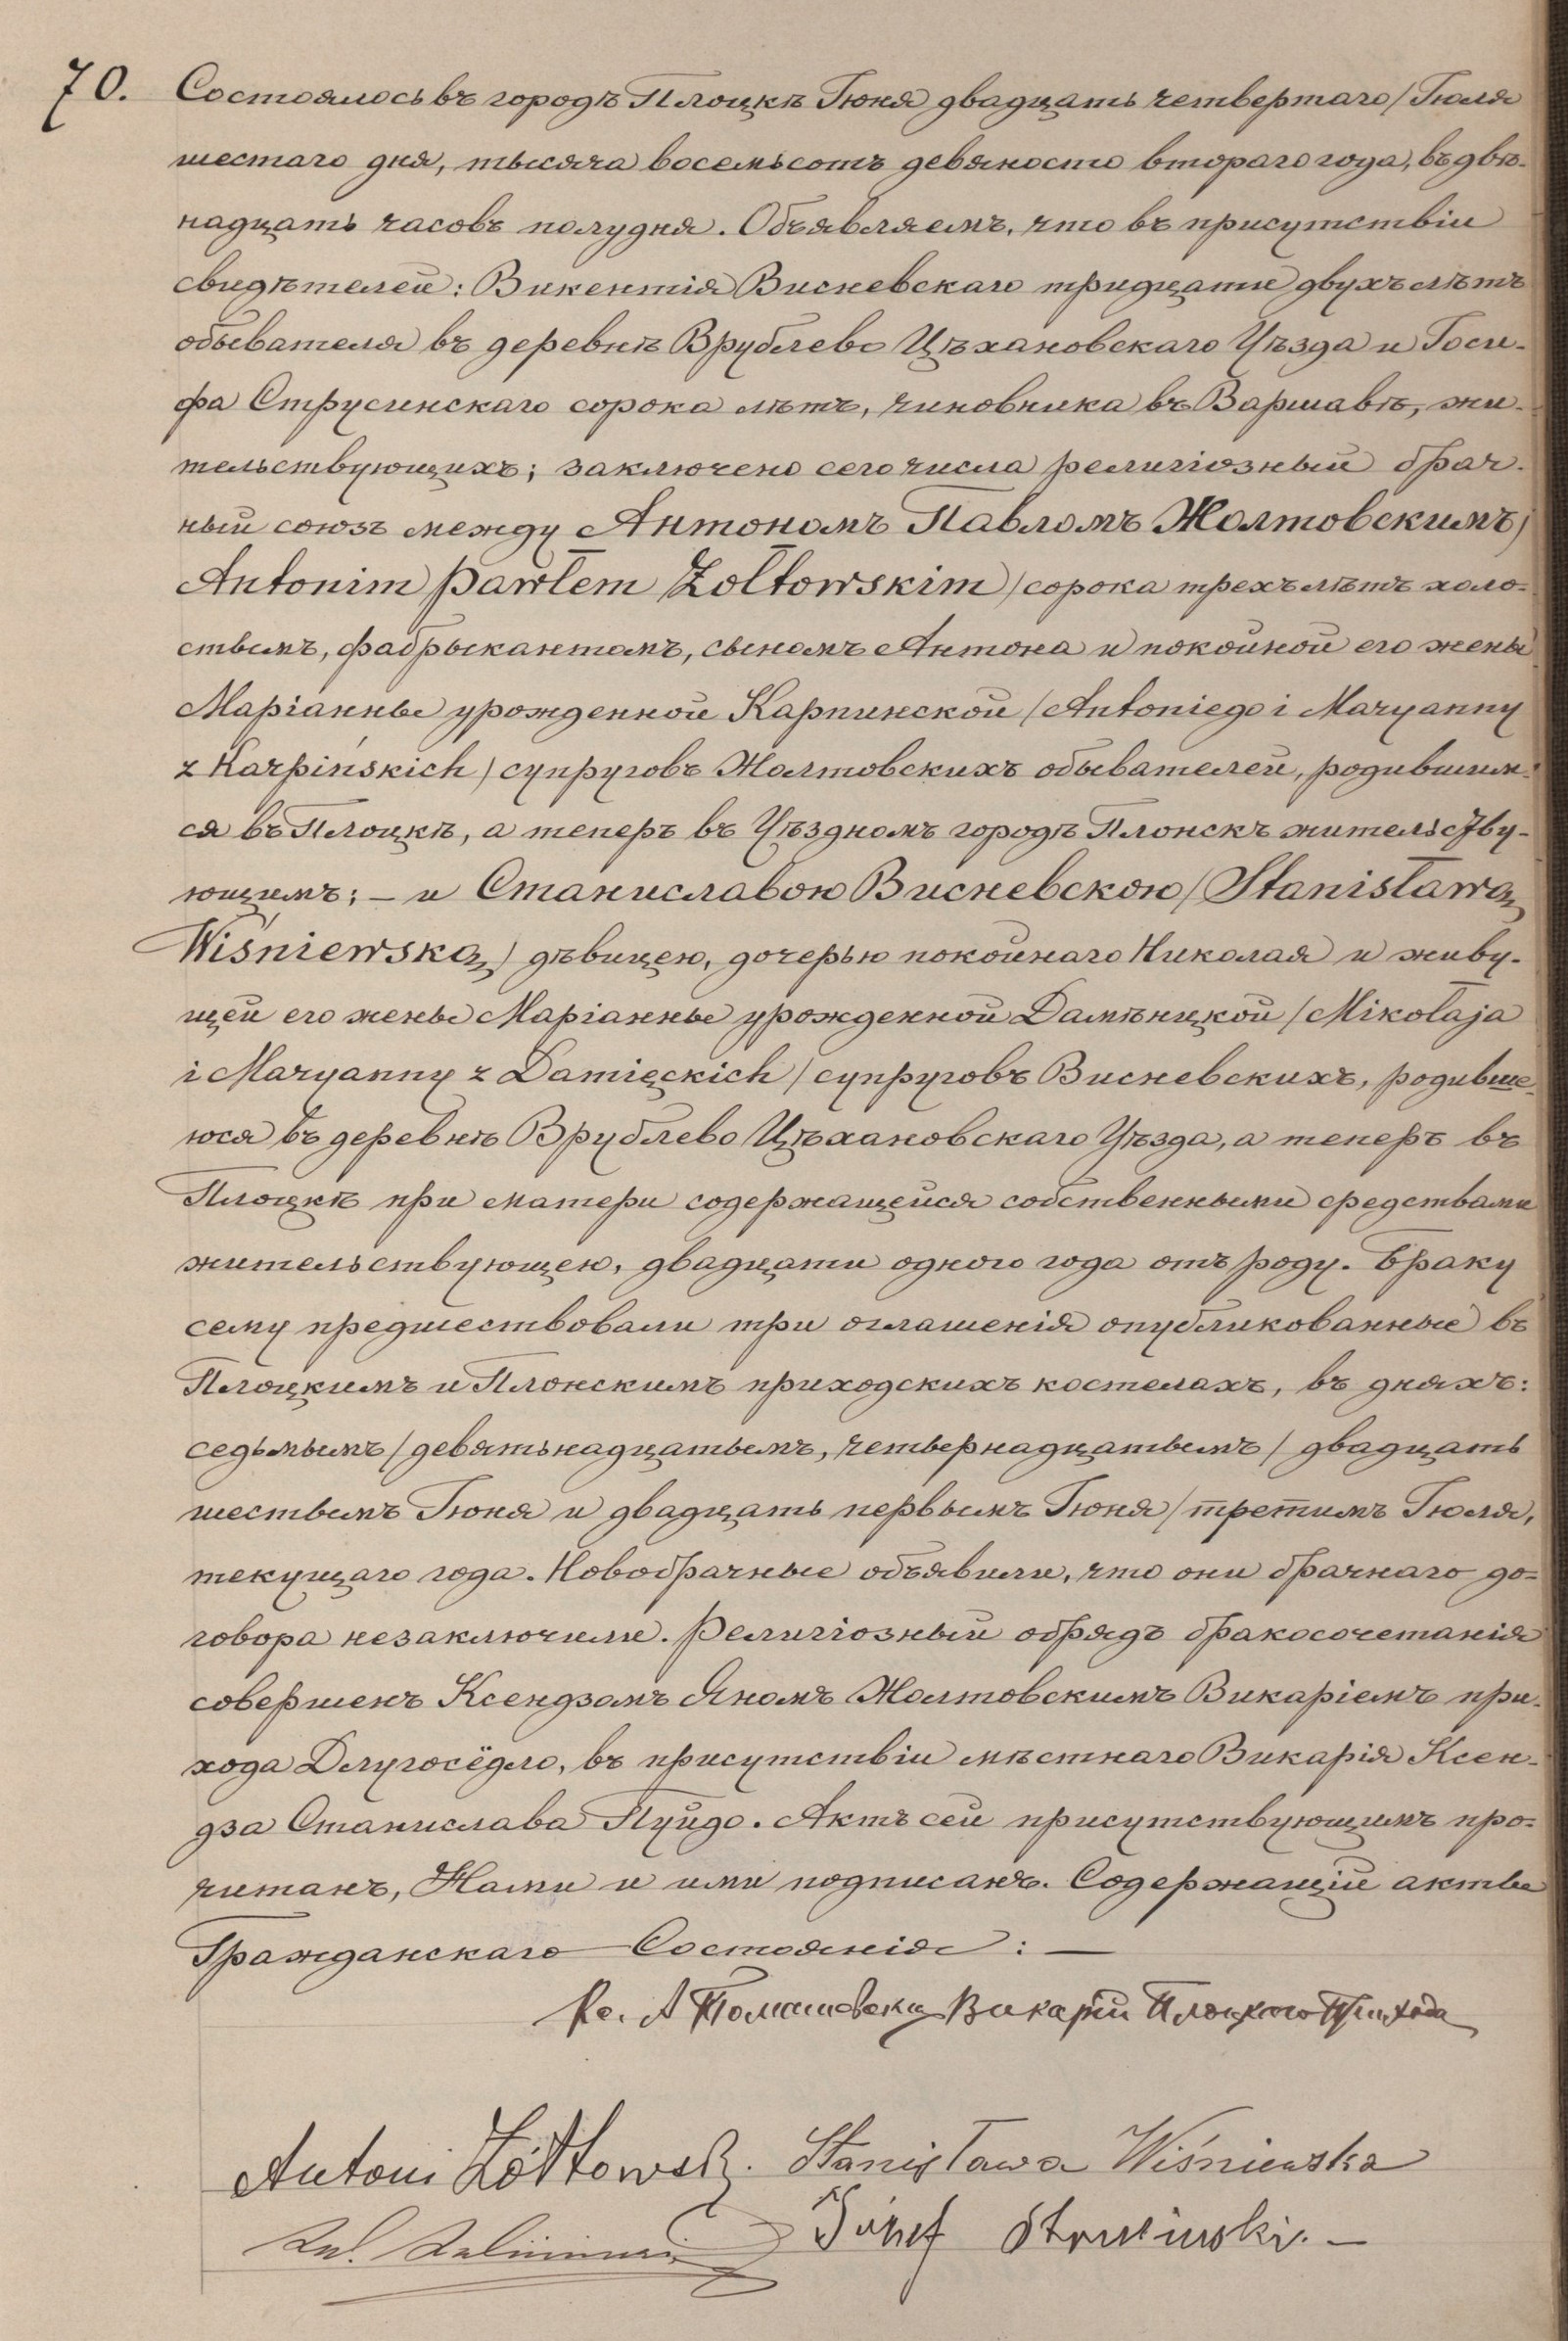 70. Состоялось въ городѣ Плоцкѣ Іюня двадцать четвертаго / Іюля
шестаго дня, тысяча восемьсотъ девяносто втораго года, въ двѣ-
надцать часовъ полудня. Объявляемъ, что въ присутствіи
свидѣтелей: Викентія Висневскаго тридцати двухъ лѣтъ
обывателя въ деревнѣ Врублево Цѣхановскаго Уѣзда и Іоси-
фа Струсинскаго сорока лѣтъ, чиновника въ Варшавѣ, жи-
тельствующихъ; заключено сего числа религіозный брач-
ный союзъ между Антономъ Павломъ Жолтовскимъ /
Antonim Pawłem Żołtowskim / сорока трехъ лѣтъ холо-
стымъ, фабрыкантомъ, сыномъ Антона и покойной его жены
Маріанны урожденной Карпинской / Antoniego i Maryanny
z Karpińskich / супруговъ Жолтовскихъ обывателей, родившим-
ся въ Плоцкѣ, а теперъ въ Уѣздномъ городѣ Плонскъ жительству-
ющимъ; – и Станиславою Висневскою / Stanisławą
Wiśniewską / дѣвицею, дочерью покойнаго Николая и живу-
щей его жены Маріанны урожденной Дамѣницкой / Mikołaja
i Maryanny z Damięckich / супруговъ Висневскихъ, родивше-
юся въ деревнѣ Врублево Цѣхановскаго Уѣзда, а теперъ въ
Плоцкѣ при матери содержащейся собственными средствами
жительствующею, двадцати одного года отъ роду. Браку
сему предшествовали три оглашенія опубликованные въ
Плоцкимъ и Плонскимъ приходскихъ костелахъ, въ дняхъ:
седьмымъ / девятьнадцатымъ, четьернадцатымъ / двадцать
шестымъ Іюня и двадцать первымъ Іюня / третимъ Іюля,
текущаго года. Новобрачные объявили, что они брачнаго до-
говора незаключили. Религіозный обрядъ бракосочетанія
совершенъ Ксендзомъ Яномъ Жолтовскимъ Викаріемъ при-
хода Длугосёдло, въ присутствіи мѣстнаго Викарія Ксен-
дза Станислава Пуйдо. Актъ сей присутствующимъ про-
читанъ, Нами и ими подписанъ. Содержащій акты
Гражданскаго Состоянія: —
Кс. А Томашевски Викарій Плоцкого Прихода
Antoni Żółtowski. Stanisława Wiśniewska
Józef Strusiński. —